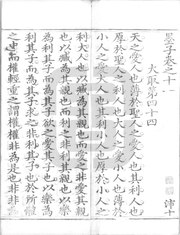 墨子卷之十一
大取第四十四
天之愛人也薄於聖人之愛人也其利人也
厚於聖人之利人也大人之愛小人也薄於
小人之愛大人也其利小人也厚於小人之
利大人也以臧為其親也而愛之非愛其親
也以臧為其親也而利之非利其親也以樂
為利其子而為其子欲之愛其子也以樂為
利其子而為其子求之非利其子也於所體
之中而權輕重之謂權權非為是也非非